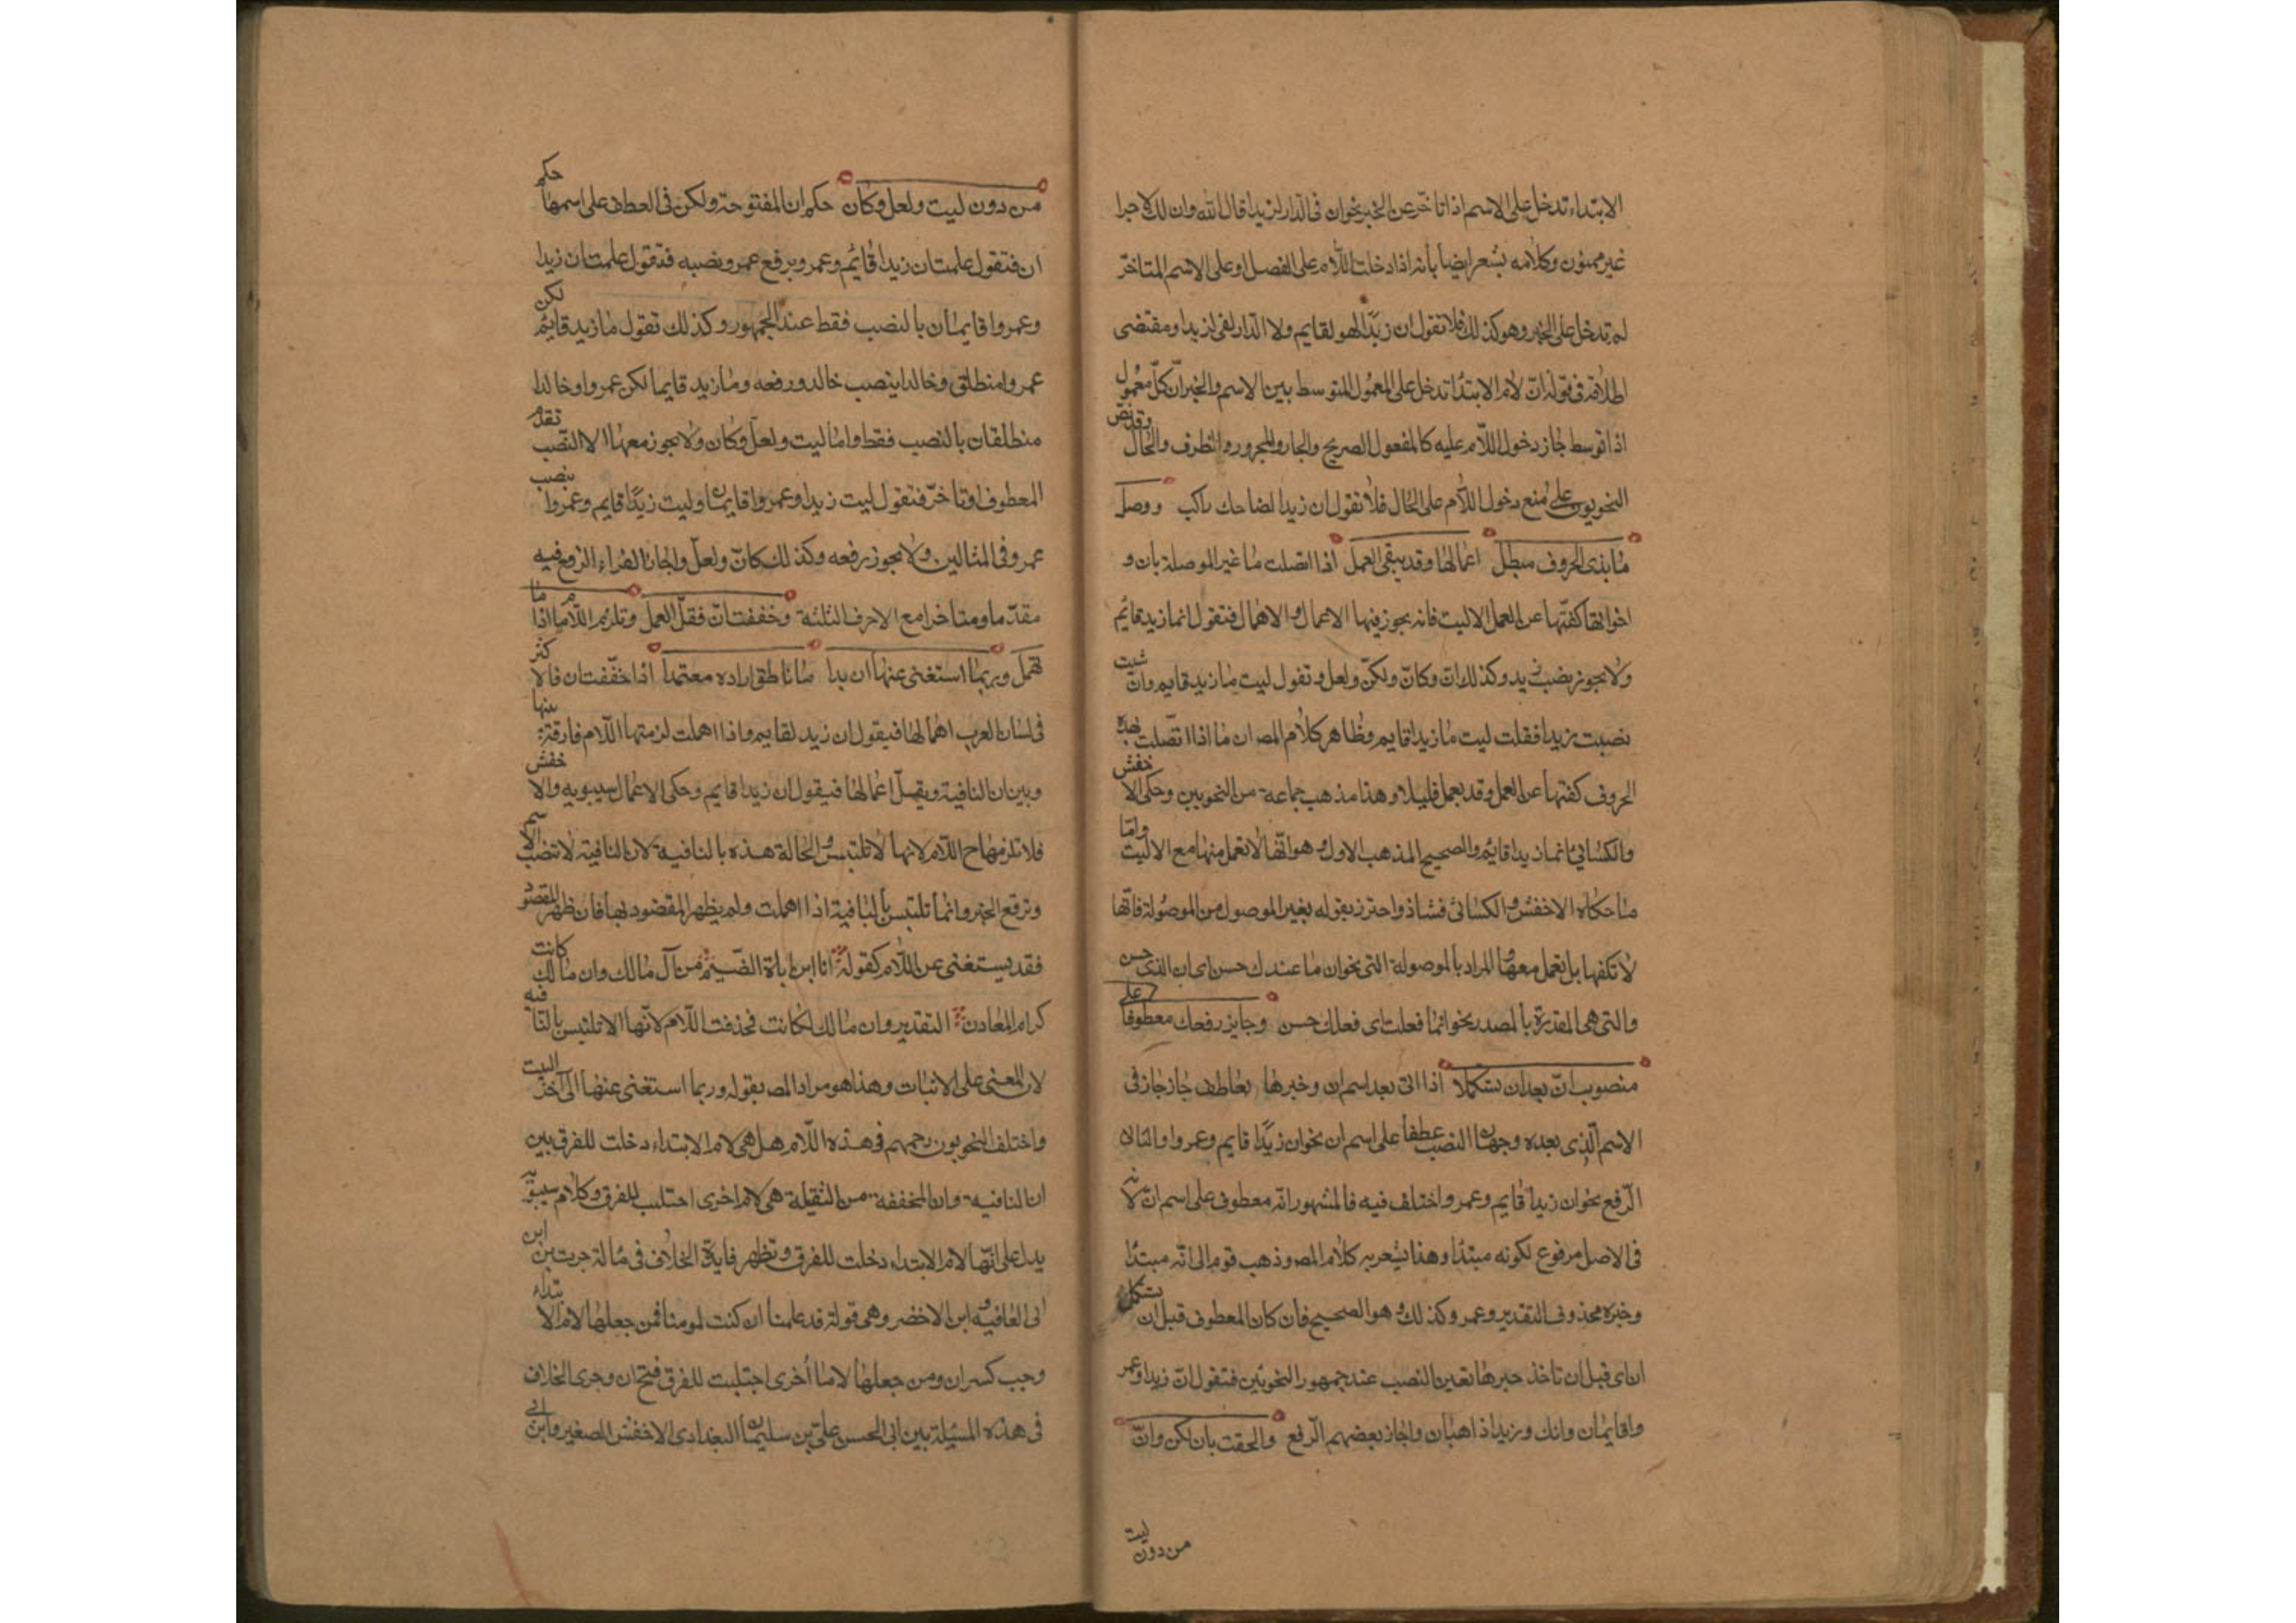 الابتداء تدخل على الاسم اذا تاخّر عن الخبر نحو ان فى الدار لزيدا قال الله وان لك لاجرا
غير ممنون وكلامه يشعر ايضا بأنه اذا دخلت اللام على الفصل او على الاسم المتاخر
لم تدخل على الخبر وهو كذلك فلا تقول ان زيدًا لهو لقايم ولا ان الدار لفى لزيدا ومقتضى
اطلاقه فى قوله انّ لام الابتدا تدخل على المعمول المتوسط بين الاسم والخبر انّ كلّ معمول
اذا توسط جاز دخول اللام عليه كالمفعول الصريح والجار والمجرور والظرف والحال وقد نص
النحويون على منع دخول اللام على الحال فلا تقول ان زيدا لضاحك راكب ووصل
ما بذى الحروف مبطل اعمالها وقد يبقى العمل اذا اتصلت ما غير الموصلة بان و
اخواتها كفتها عن العمل الا ليت فانه يجوز فيها الاعمال والاهمال فتقول انما زيد قائم
ولا يجوز نصب زيد وكذلك ان وكانّ ولكنّ ولعل وتقول ليت ما زيد قايم وان شيت
نصبت زيدا فقلت ليت ما زيدا قايم وظاهر كلام المص ان ما اذا اتّصلت بهذه
الحروف كفتها عن العمل وقد يعمل قليلا وهذا مذهب جماعة من النحويين وحكى الاخفش
والكسائى انما زيدا قائم والصحيح المذهب الاول وهو انّها لا تعمل منها مع الا ليت وامّا
ما حكاه الاخفش والكسائى فشاذ واحترز بقوله بغير الموصول من الموصولة فانّها
لا تكفها بل تعمل معها والمراد بالموصولة التى نحو ان ما عندك حسن اى ان الذى حسن
والتى هى المقدرة بالمصدر نحو انما فعلت اى فعلك حسن وجايز رفعك معطوفا على
منصوب انّ بعد ان تستكملا اذا اتى بعد اسم ان وخبرها بعاطف جاز جاز فى
الاسم الذى بعده وجهان النصب عطفا على اسم ان نحو ان زيدًا قايم وعمروا والثانى
الرّفع نحو ان زيدا قايم وعمرو واختلف فيه فالمشهور انّه معطوف على اسم انّ لانه
فى الاصل مرفوع لكونه مبتدًا وهذا يشعر به كلام المص وذهب قوم الى انّه مبتدًا
وخبره محذوف التقدير وعمرو كذلك وهو الصحيح فان كان المعطوف قبل ان تستكمل
ان اى قبل ان تاخذ خبرها تعين النصب عند جمهور النحويّين فتقول انّ زيدا وعمر
وا قايمان وانك وزيدا ذاهبان واجاز بعضهم الرّفع والحقت بان لكن وانّ
من دون ليت
من دون ليت ولعل وكان حكم ان المفتوحة ولكن فى العطف على اسمها حكم
ان فتقول علمت ان زيدا قائم وعمرو برفع عمرو ونصبه فتقول علمت ان زيدا
وعمروا قايمان بالنصب فقط عند الجمهور وكذلك تقول ما زيد قايم لكن
عمروا منطلق وخالدا بنصب خالد ورفعه وما زيد قايما لكن عمروا وخالدا
منطلقان بالنصب فقط واما ليت ولعل وكان ولا يجوز معها الا النصب تقدم
المعطوف او تاخّر فتقول ليت زيدا وعمروا قايمان وليت زيدًا قايم وعمروا بنصب
عمرو فى المثالين ولا يجوز رفعه وكذلك كانّ ولعلّ واجاز الفراء الرفع فيه
مقدّما ومتاخرا مع الاحرف الثلثة وخففت انّ فقلّ العمل وتلزم اللام اذا ما
تهمل وربما استغنى عنها ان بدا ما ناطق اراده معتمدا اذا خفّفت ان فالاكثر
فى لسان العرب اهمالها فيقول ان زيد لقايم واذا اهملت لزمتها اللام فارقة بينها
وبين ان النافية ويقلّ اعمالها فيقول ان زيدا قايم وحكى الاعمال سيبويه والاخفش
فلا تلزمها ح اللام لانها لا تلتبس والحالة هذه بالنافية لان النافية لا تنصب الاسم
وترفع الخبر وانما تلتبس بالنافية اذا اهملت ولم يظهر المقصود بها فان ظهر المقصود
فقد يستغنى عن اللام كقوله انا ابن اباة الضيم من آل مالك وان مالك كانت
كرام المعادن التقدير وان مالك لكانت فحذفت اللام لانّها لا تلتبس بالنافيه
لان المعنى على الاثبات وهذا هو مراد المص بقوله وربما استغنى عنها الى آخر البيت
واختلف النحويون رحمهم فى هذه اللام هل هى لام الابتداء دخلت للفرق بين
ان النافية وان المخففة من الثقيلة هى لام اخرى اجتلب للفرق وكلام سيبويه
يدل على انّها لام الابتداء دخلت للفرق وتظهر فايدة الخلاف فى مسالة جرت بين ابن
ابى العافيه وابن الاخضر وهى قولة قد علمنا ان كنت لمومنا فمن جعلها لام الابتداء
وجب كسر ان ومن جعلها لاما أخرى اجتلبت للفرق فتح ان وجرى الخلاف
فى هذه المسئلة بين ابى الحسن على بن سليمان البغدادى الاخفش الصغير وابن ابى